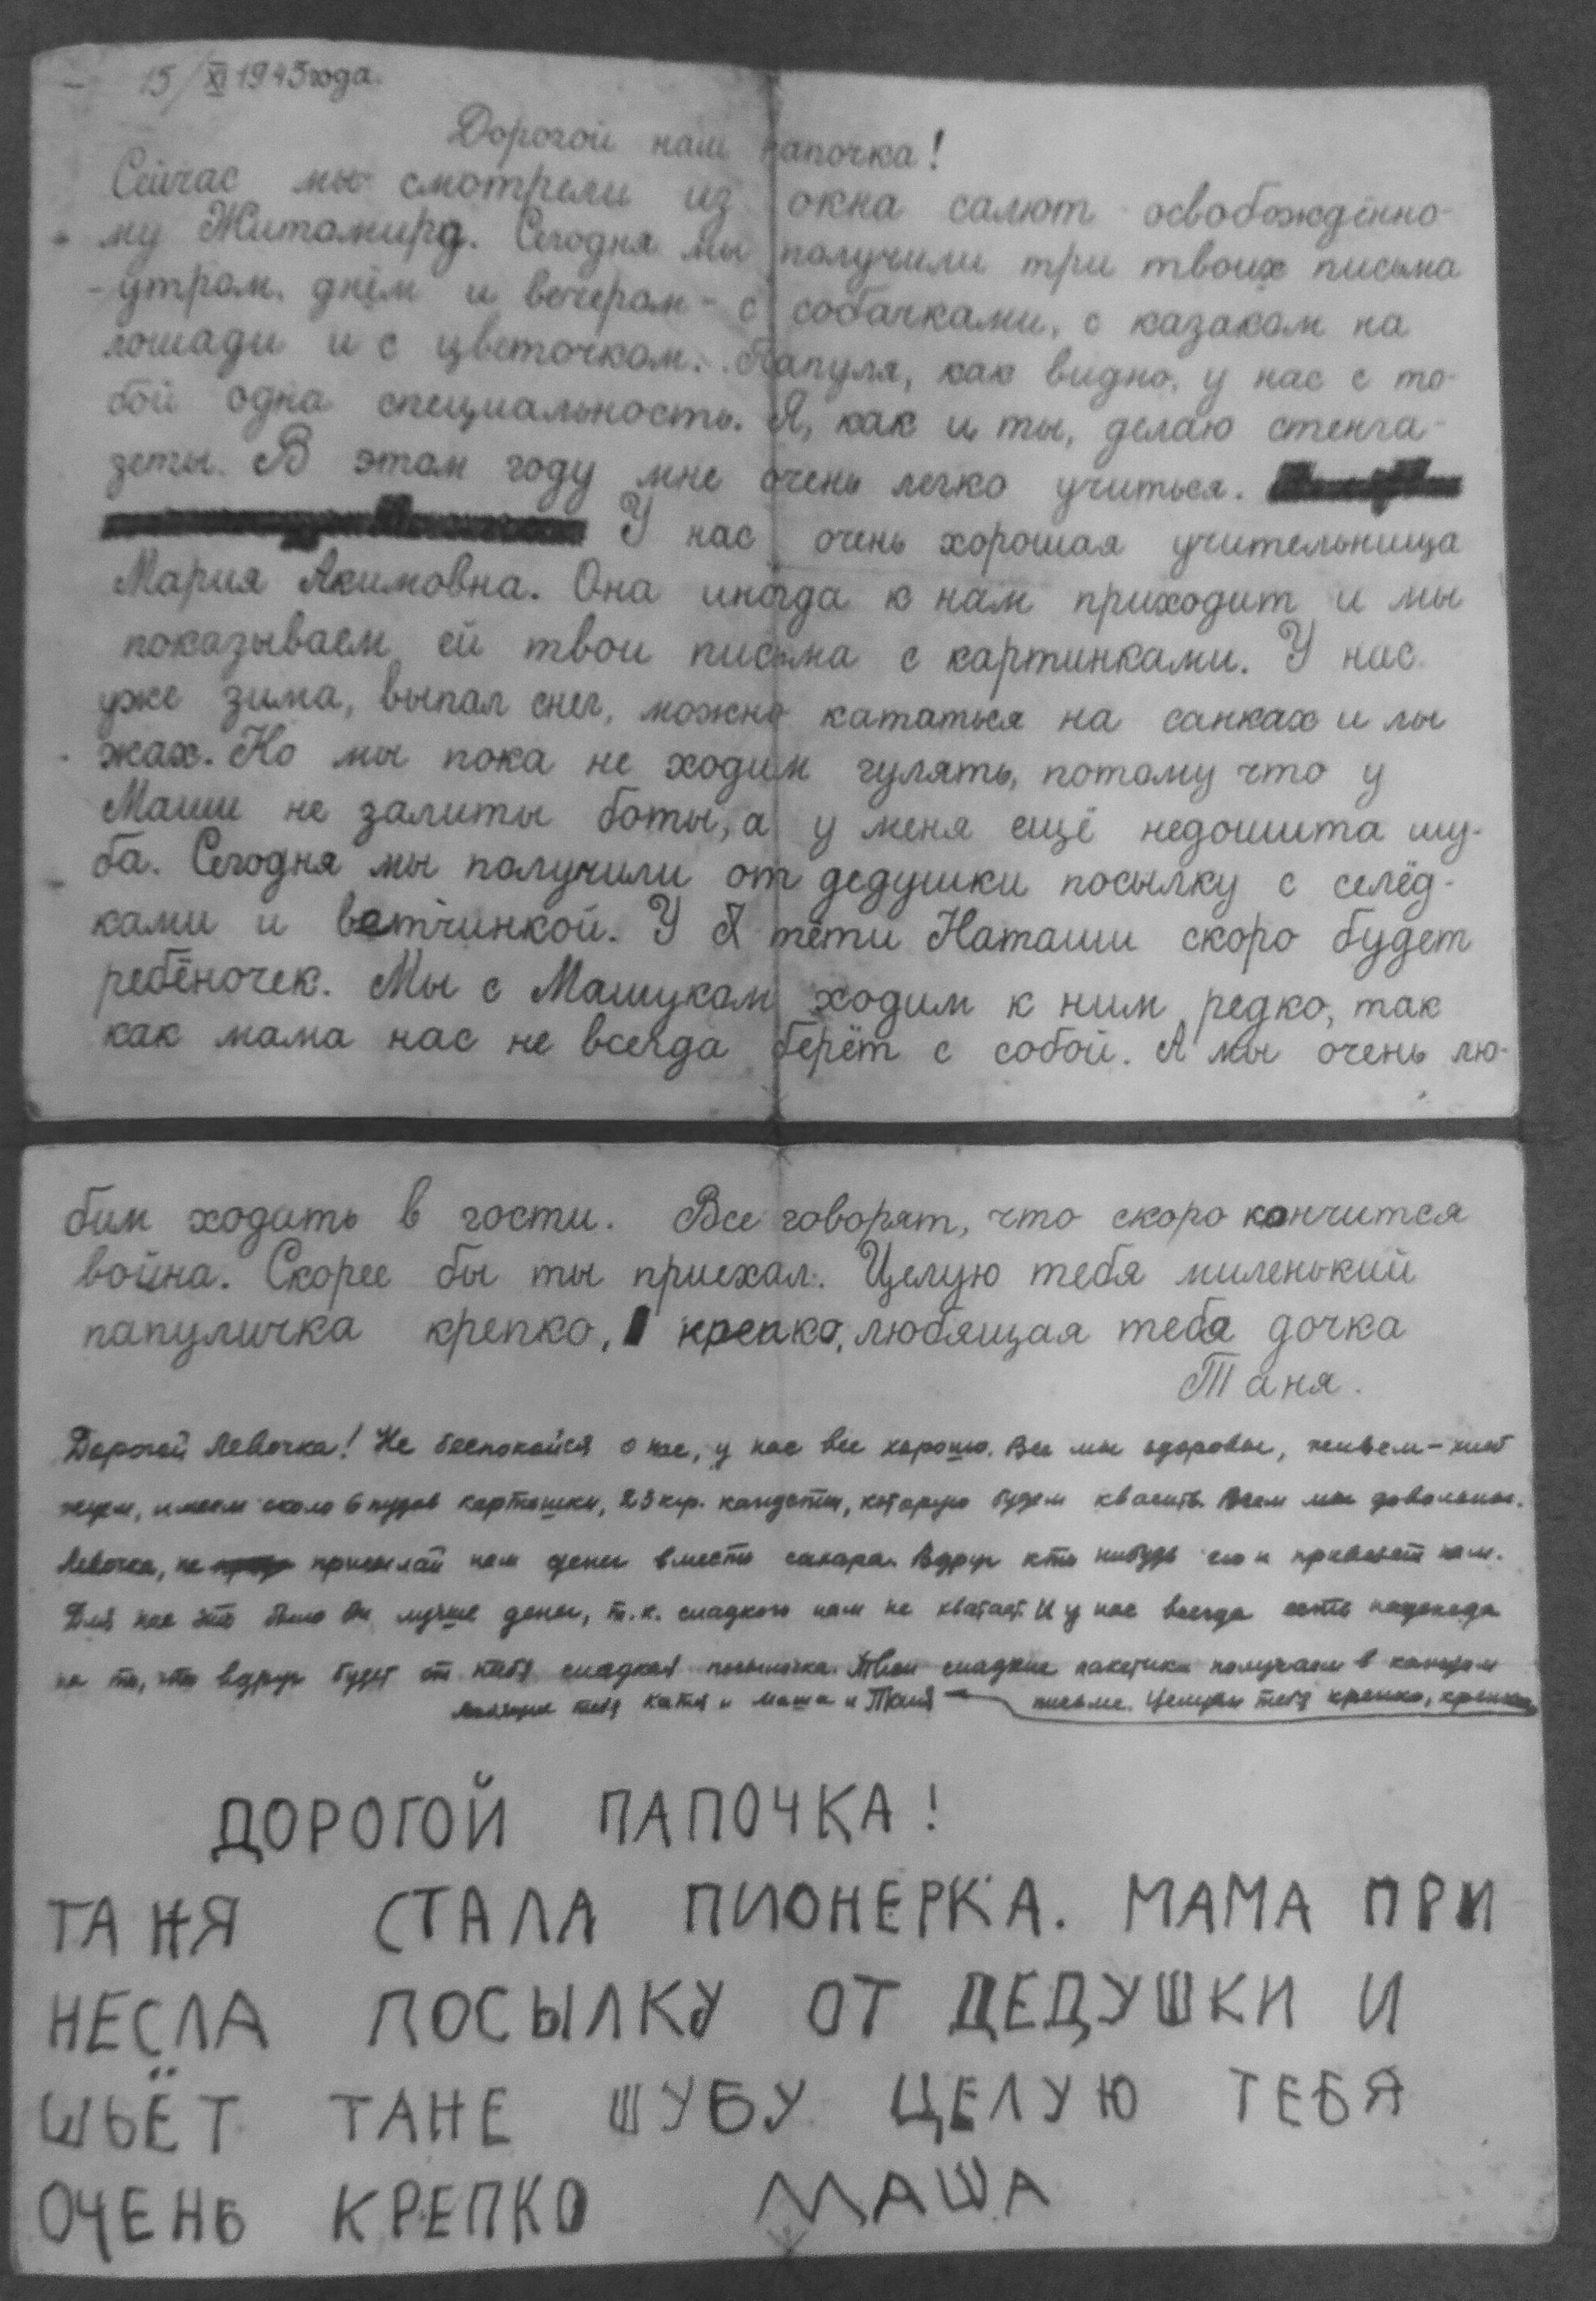 15/XI 1943 года.
Дорогой наш папочка!
Сейчас мы смотрели из окна салют освобождённо-
му Житомиру. Сегодня мы получили три твоих письма
- утром, днём и вечером - с собачками, с казаком на
лошади и с цветочком. Папуля, как видно, у нас с то-
бой одна специальность. Я, как и ты, делаю стенга-
зеты. В этом году мне очень легко учиться.
У нас очень хорошая учительница
Мария Акимовна. Она иногда к нам приходит и мы
показываем ей твои письма с картинками. У нас
уже зима, выпал снег, можно кататься на санках и лы
жах. Но мы пока не ходим гулять, потому что у
Маши не залиты боты, а у меня ещё недошита шу-
ба. Сегодня мы получили от дедушки посылку с селёд-
ками и ветчинкой. У тёти Наташи скоро будет
ребёночек. Мы с Машуком ходим к ним редко, так
как мама нас не всегда берёт с собой. А мы очень лю-
бим ходить в гости. Все говорят, что скоро кончится
война. Скорее бы ты приехал. Целую тебя миленький
папуличка крепко, крепко, любящая тебя дочка
Таня.
Дорогой Левочка! Не беспокойся о нас, у нас все хорошо. Все мы здоровы, живем - хлеб
жуем, имеем около 6 пудов картошки, 23 кгр. капусты, которую будем квасить. Всем мы довольны.
Левочка, не присылай нам денег вместо сахара. Вдруг кто нибудь его и привезет нам.
Для нас это было бы лучше денег, т.к. сладкого нам не хватает. И у нас всегда есть надежда
на то, что вдруг будет от тебя сладкая посылочка. Твои сладкие пакетики получаем в каждом
письме. Целуем тебя крепко, крепко
любящие тебя Катя и Маша и Таня
ДОРОГОЙ ПАПОЧКА!
ТАНЯ СТАЛА ПИОНЕРКА. МАМА ПРИ
НЕСЛА ПОСЫЛКУ ОТ ДЕДУШКИ И
ШЬЁТ ТАНЕ ШУБУ ЦЕЛУЮ ТЕБЯ
ОЧЕНЬ КРЕПКО МАША